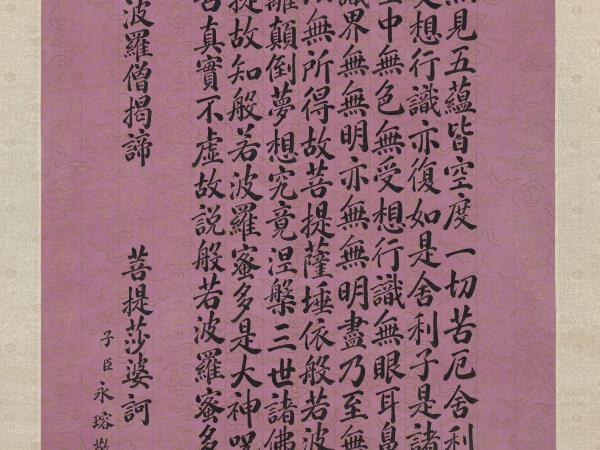 見五蘊皆空度一切苦厄舍利
想行識亦復如是舍利子是諸
中無色無受想行識無眼耳鼻
界無無明亦無無明盡乃至無
無所得故菩提薩埵依般若波
顛倒夢想究竟涅槃三世諸佛
故知般若波羅蜜多是大神咒
真實不虛故說般若波羅蜜多
波羅僧揭諦 菩提莎婆訶
子臣永瑢敬